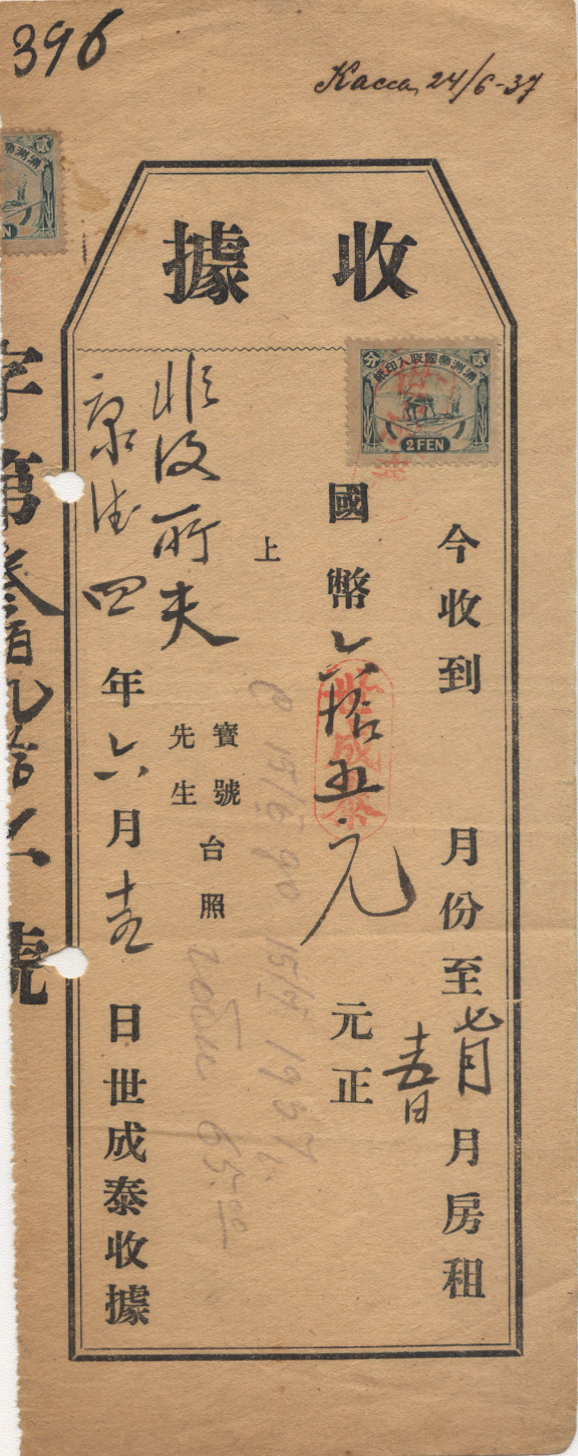 396
Касса, 24/6-37
收據
滿洲帝國收入印紙
貳 分
2 FEN
今收到 月份至七月十五日月房租
國幣六拾五元 元正
世成泰
上
寶號
先生
台照
康德四年六月十五日世成泰收據
字第叁佰九拾六號
с 15/VI до 15/VII 1937 г.
гоби 65.00